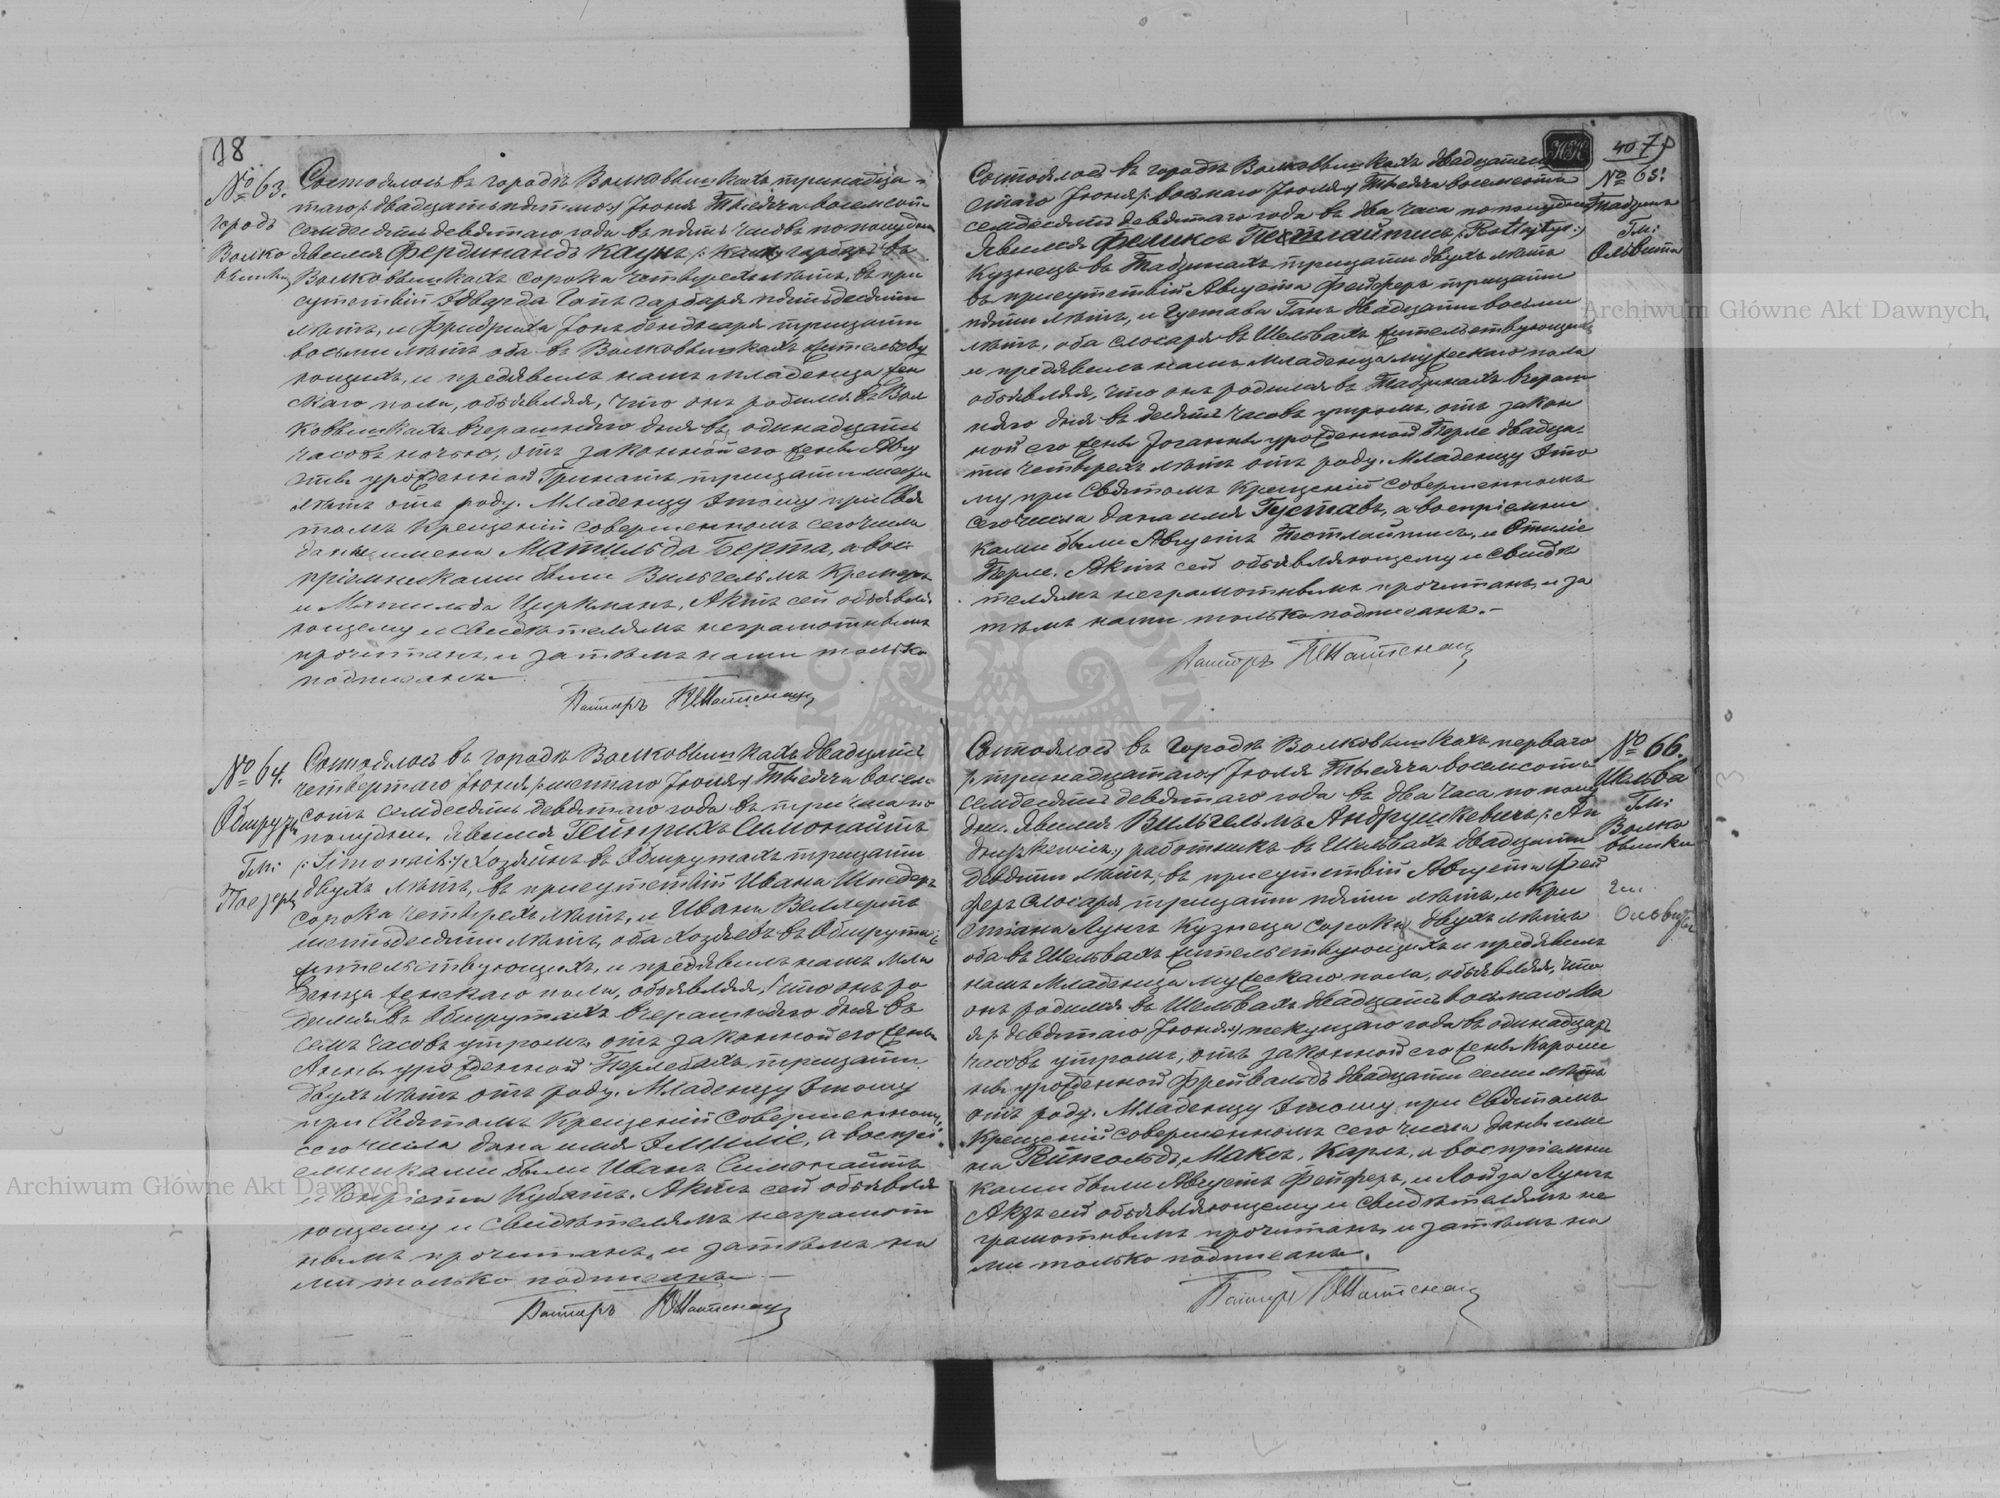 18
№ 63.
городъ
Волко
вышки
Состоялось въ городѣ Волковышкахъ тринадца-
таго /: двадцать пятаго :/ Іюня Тысяча восемсотъ
семдесятъ девятаго года въ пять часовъ по полудни
Явился Фердинандъ Каунъ гарбаръ въ
Волковышкахъ сорока четырехъ лѣтъ, въ при
сутствіи Эдварда Ганъ гарбаря пятьдесяти
лѣтъ, и Фридриха столяра тридцати
восьми лѣтъ оба въ Волковышкахъ жительству
ющихъ, и предявилъ намъ младенца жен
скаго пола, объявляя, что онъ родился въ Вол
ковышкахъ вчерашняго дня въ одинадцать
часовъ ночью, отъ законной его жены Авгу
сты урожденной Гринатъ тридцати шести
лѣтъ отъ роду. Младенцу этому при Свя
томъ Крещеніи совершенномъ сего числа
даны имена Матильда Берта, а вос-
пріемниками были Вильгельмъ Кремеръ
и Матильда Циркманъ, Актъ сей объявля
ющему и свидѣтелямъ неграмотнымъ
прочитанъ, и затѣмъ нами только
подписанъ.
Пасторъ
№ 64.
Обшруты
Гм:
Поезеры
Состоялось въ городѣ Волковышкахъ двадцать
четвертаго Іюня /: шестаго Іюля :/ Тысяча восем
сотъ семдесятъ девятаго года въ три часа по
полудни. Явился Гейнрихъ Симонайтъ
/: Simonait :/ Хозяинъ въ Обшрутахъ тридцати
двухъ лѣтъ, въ присутствіи Ивана Шнедеръ
сорока четырехъ лѣтъ, и Ивана Веллертъ
шестьдесяти лѣтъ, оба хозяевъ въ Обшрутахъ
жительствующихъ, и предявилъ намъ мла
денца женскаго пола, объявляя, что онъ ро
дился въ Обшрутахъ вчерашняго дня въ
семь часовъ утромъ, отъ законной его жены
Анны урожденной Перлебахъ тридцати
двухъ лѣтъ отъ роду. Младенцу этому
при Святомъ Крещеніи совершенномъ
сего числа дана имя Эмиліе, а воспрі
емниками были Иванъ Симонайтъ
и Генріета Кубатъ. Актъ сей объявля
ющему и свидѣтелямъ неграмот
нымъ прочитанъ, и затѣмъ на
ми только подписанъ
Пасторъ
407
№ 65:
Табунъ
Гм:
Ольвита
Состоялось въ городѣ Волковышкахъ двадцать
стаго Іюня /: восьмаго Іюля :/ Тысяча восемсотъ
семдесятъ девятаго года въ два часа по полудни
Явился Феликсъ
Кузнецъ въ Табунахъ, тридцати двухъ лѣтъ
въ присутствіи Августа Фейферъ тридцати
пяти лѣтъ, и Густава Ганъ двадцати восьми
лѣтъ, оба слесаря въ Шельвахъ жительствующихъ
и предявилъ намъ младенца мужескаго пола
объявляя, что онъ родился въ Табунахъ вчераш
няго дня въ десять часовъ утромъ, отъ закон
ной его жены Іоганны урожденной Перле двадца-
ти четырехъ лѣтъ отъ роду. Младенцу Это
му при Святомъ Крещеніи совершенномъ
сего числа дана имя Густавъ, а воспріемни
ками были Августъ Пестлайтисъ, и Отиліе
Перле. Актъ сей объявляющему и свидѣ
телямъ неграмотнымъ прочитанъ, и за
тѣмъ нами только подписанъ.-
Пасторъ
№ 66.
Шельва
Гм:
Волко
вышки
гм.
Ольвита
Состоялось въ городѣ Волковышкахъ перваго
/: тринадцатаго :/ Іюля Тысяча восемсотъ
семдесятъ девятаго года въ два часа по полу
дни. Явился Вильгельмъ Андрушкевичъ /: An
druszkewicz :/ работникъ въ Шельвахъ двадцати
девяти лѣтъ, въ присутствіи Августа Фей
феръ слесаря тридцати пяти лѣтъ, и Кри
стіана Лунгъ Кузнеца сорока двухъ лѣтъ
оба въ Шельвахъ жительствующихъ и предявилъ
намъ младенца мужескаго пола, объявляя, что
онъ родился въ Шельвахъ двадцать восьмаго Ма
я /: девятаго Іюня :/ текущаго года въ одинадцать
часовъ утромъ, отъ законной его жены Кароли
ны урожденной Фрейвальдъ двадцати семи лѣтъ
отъ роду. Младенцу этому при Святомъ
Крещеніи совершенномъ сего числа даны име
на Рейнгольдъ, Максъ, Карлъ, а воспріемни
ками были Августъ Фейферъ, и Лоиза Лунгъ
Актъ сей объявляющему и свидѣтелямъ не
грамотнымъ прочитанъ, и затѣмъ на
ми только подписанъ.
Пасторъ
Archiwum Główne Akt Dawnych
Archiwum Główne Akt Dawnych